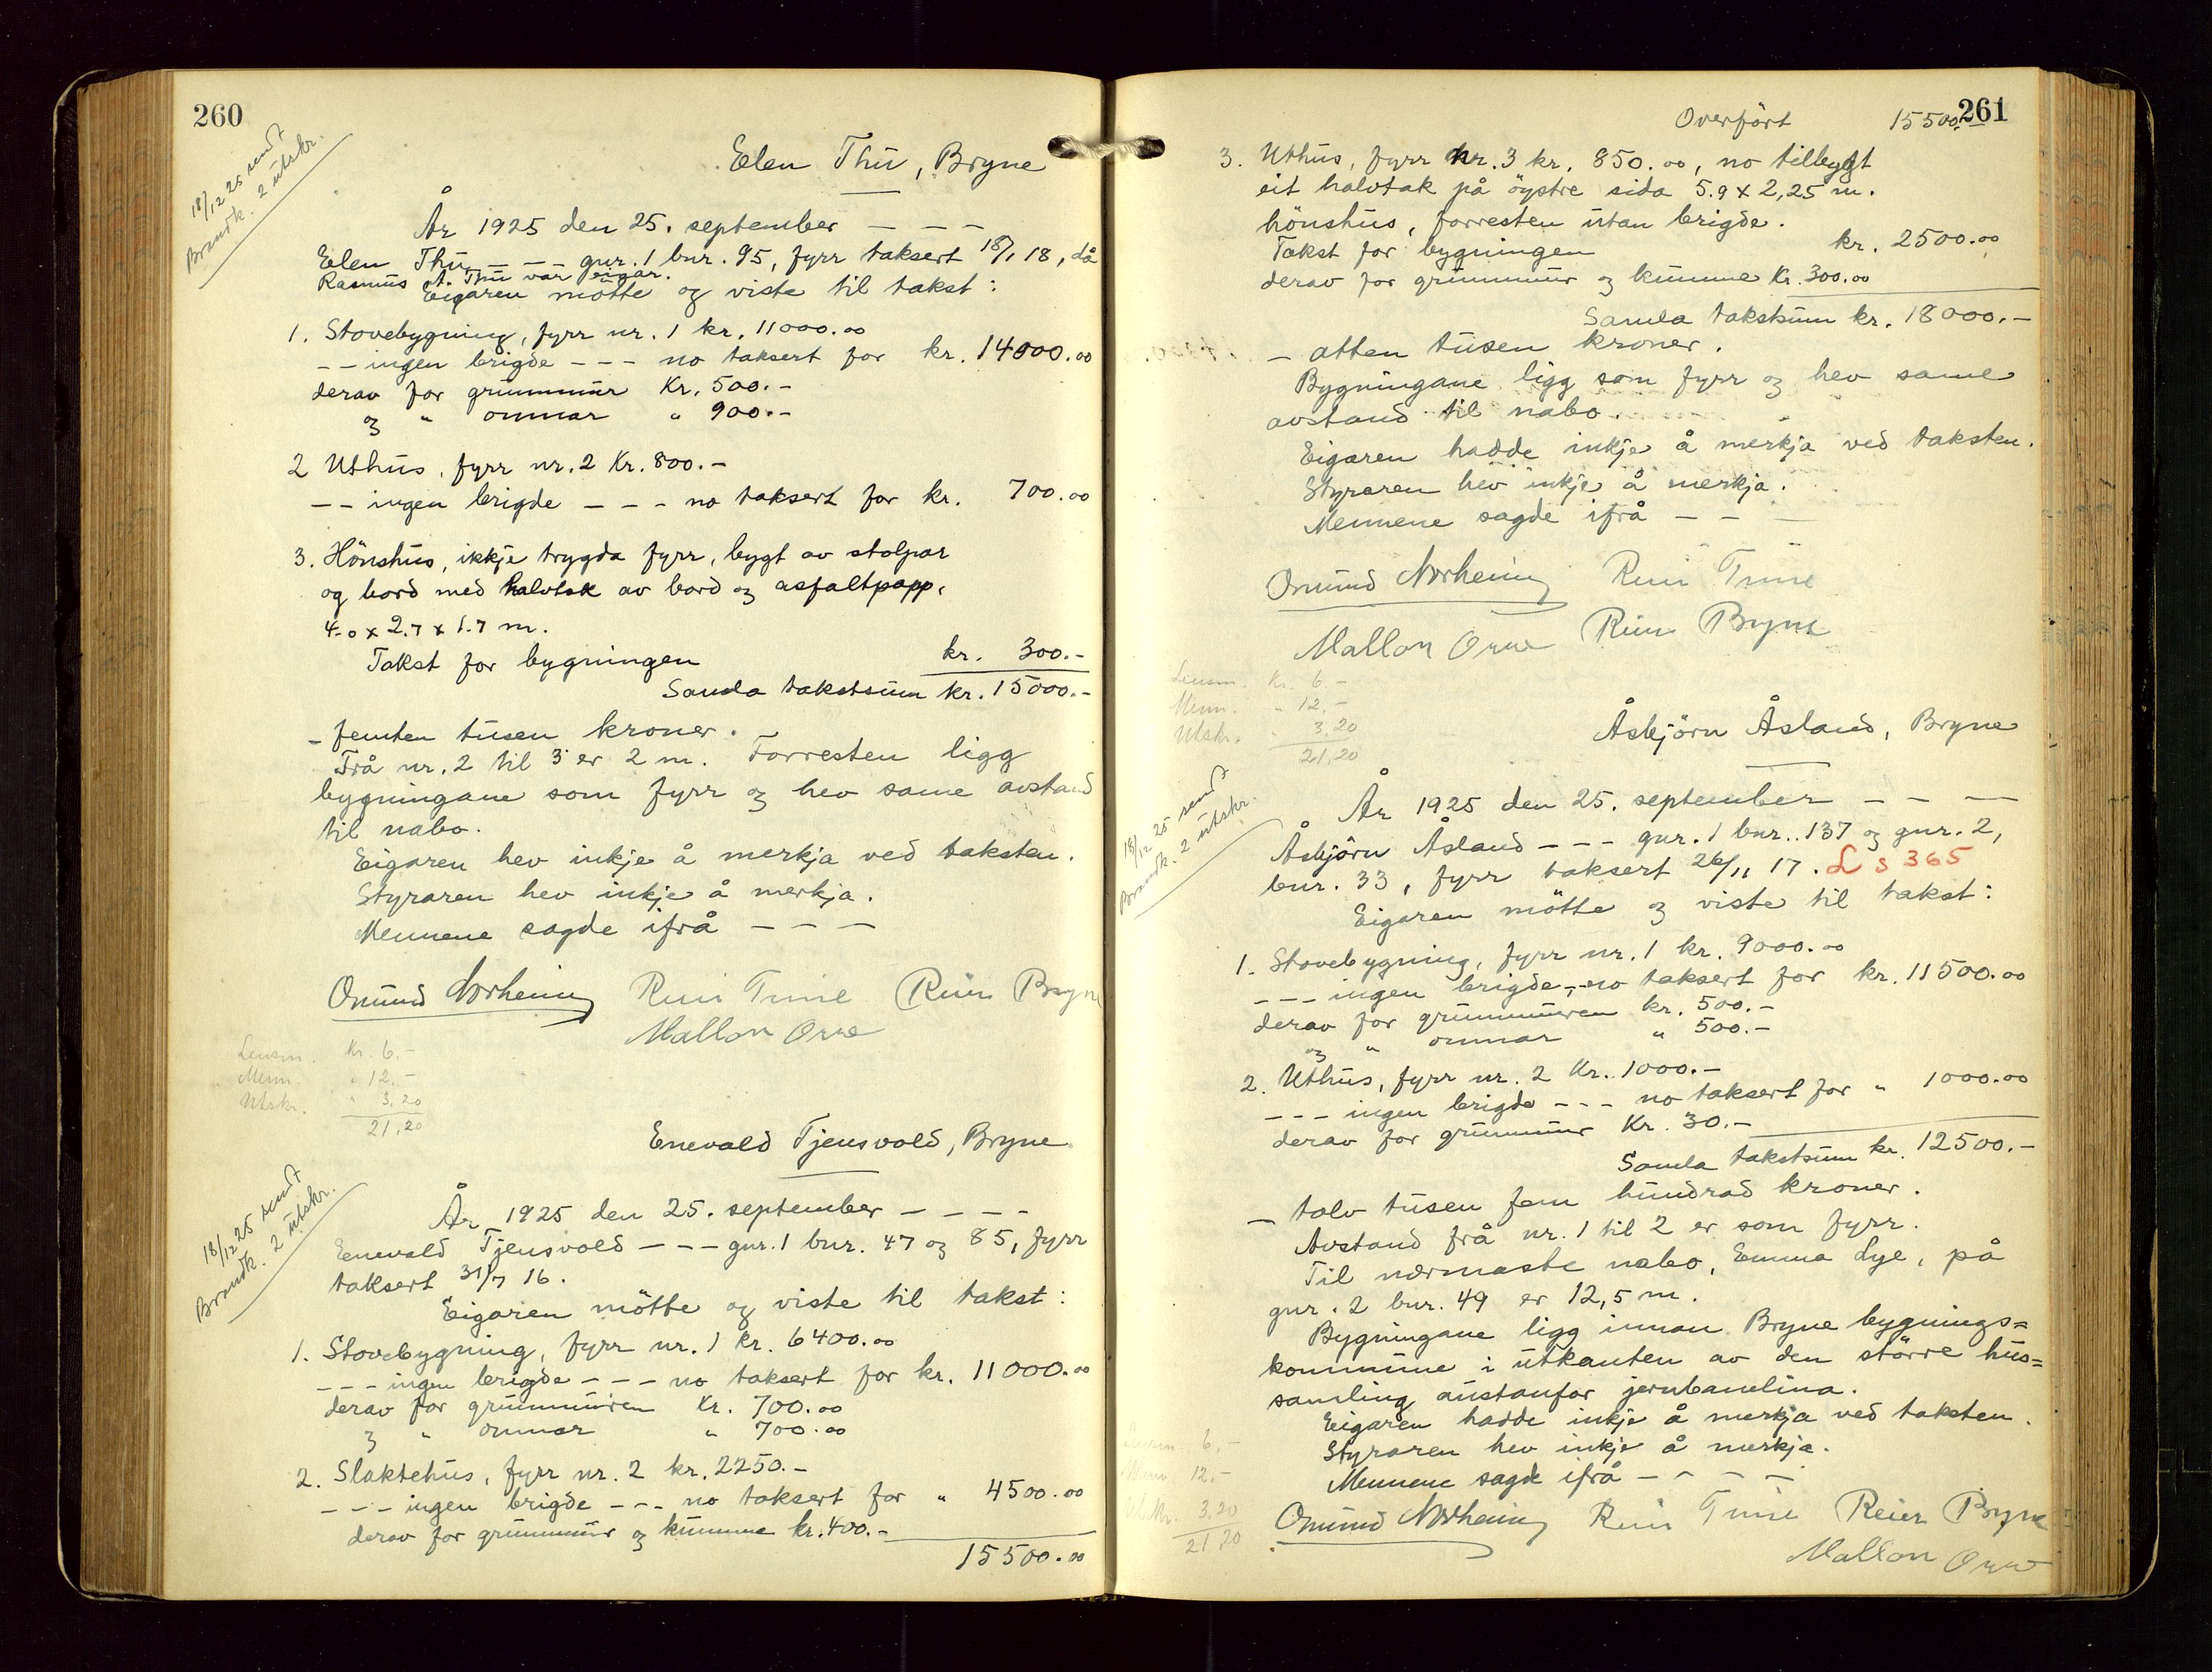 260
18/12 25 sendt
Brandk. 2 utskr.
Elen Thu, Bryne
År 1925 den 25. september – – –
Elen Thu – – gnr. 1 bnr. 95, fyrr taksert 18/1 18, då
Rasmus A. Thu var eigar.
Eigaren møtte og viste til takst:
1. Stovebygning, fyrr nr. 1 kr. 11000.00
– – ingen brigde – – – no taksert for kr. 14000.00
derav for grunnmur Kr. 500.–
og " omnar " 900.–
2 Uthus, fyrr nr. 2 Kr. 800.–
– – ingen brigde – – – no taksert for kr. 700.00
3. Hönshus, ikkje trygda fyrr, bygt av stolpar
og bord med halvtak av bord og asfaltpapp,
4.0 x 2.7 x 1.7 m.
Takst for bygningen kr. 300.–
Samla takstsum kr. 15000.–
– femten tusen kroner.
Frå nr. 2 til 3 er 2 m. Forresten ligg
bygningane som fyrr og hev same avstand
til nabo.
Eigaren hev inkje å merkja ved taksten.
Styraren hev inkje å merkja.
Mennene sagde ifrå – – –
Omund Norheim Reier Time Reier Bryne
Mallon Orre
Lensm. Kr. 6.–
Menn. " 12.–
Utskr. " 3,20
21,20
Enevald Tjensvold, Bryne
18/12 25 sendt
Brandk. 2 utskr.
År 1925 den 25. september – – – –
Enevald Tjensvold – – – gnr. 1 bnr. 47 og 85, fyrr
taksert 31/7 16.
Eigaren mötte og viste til takst:
1. Stovebygning, fyrr nr. 1 kr. 6400.00
– – – ingen brigde – – – no taksert for kr. 11000.00
derav for grunnmuren Kr. 700.00
og " omnar " 700.00
2. Slaktehus, fyrr nr. 2 kr. 2250.–
– – – ingen brigde – – – no taksert for " 4500.00
derav for grunnmur og kumme kr. 400.–
15500.00
261
Overfört 15500.–
3. Uthus, fyrr nr. 3 kr. 850.00, no tilbygt
eit halvtak på öystre sida 5.9 x 2,25 m.
hönshus, forresten utan brigde.
Takst for bygningen kr. 2500.00
derav for grunnmur og kumme Kr. 300.00
Samla takstsum kr. 18000.–
– atten tusen kroner.
Bygningane ligg som fyrr og hev same
avstand til nabo.
Eigaren hadde inkje å merkja ved taksten.
Styraren hev inkje å merkja.
Mennene sagde ifrå – – –
Omund Norheim Reier Time
Mallon Orre Reier Bryne
Lensm. Kr. 6.–
Menn. " 12.–
Utskr. " 3,20
21,20
Åsbjörn Åsland, Bryne
18/12 25 sendt
Brandk. 2 utskr.
År 1925 den 25. september – – –
Åsbjörn Åsland – – – gnr. 1 bnr. 137 og gnr. 2,
bnr. 33, fyrr taksert 26/11 17. L s 365
Eigaren mötte og viste til takst:
1. Stovebygning, fyrr nr. 1 kr. 9000.00
– – – ingen brigde – – no taksert for kr. 11500.00
derav for grunnmuren kr. 500.–
og " omnar " 500.–
2. Uthus, fyrr nr. 2 Kr. 1000.–
– – – ingen brigde – – – no taksert for " 1000.00
derav for grunnmur Kr. 30.–
Samla takstsum kr. 12500.–
– tolv tusen fem hundrad kroner.
Avstand frå nr. 1 til 2 er som fyrr.
Til nærmaste nabo, Emma Lye, på
gnr. 2 bnr. 49 er 12,5 m.
Bygningane ligg innan Bryne bygnings=
kommune i utkanten av den större hus=
samling austanfor jernbanelina.
Eigaren hadde inkje å merkja ved taksten.
Styraren hev inkje å merkja.
Mennene sagde ifrå – – – –
Lensm. 6,–
Menn. 12.–
Utskr. 3,20
21,20
Omund Norheim Reier Time Reier Bryne
Mallon Orre